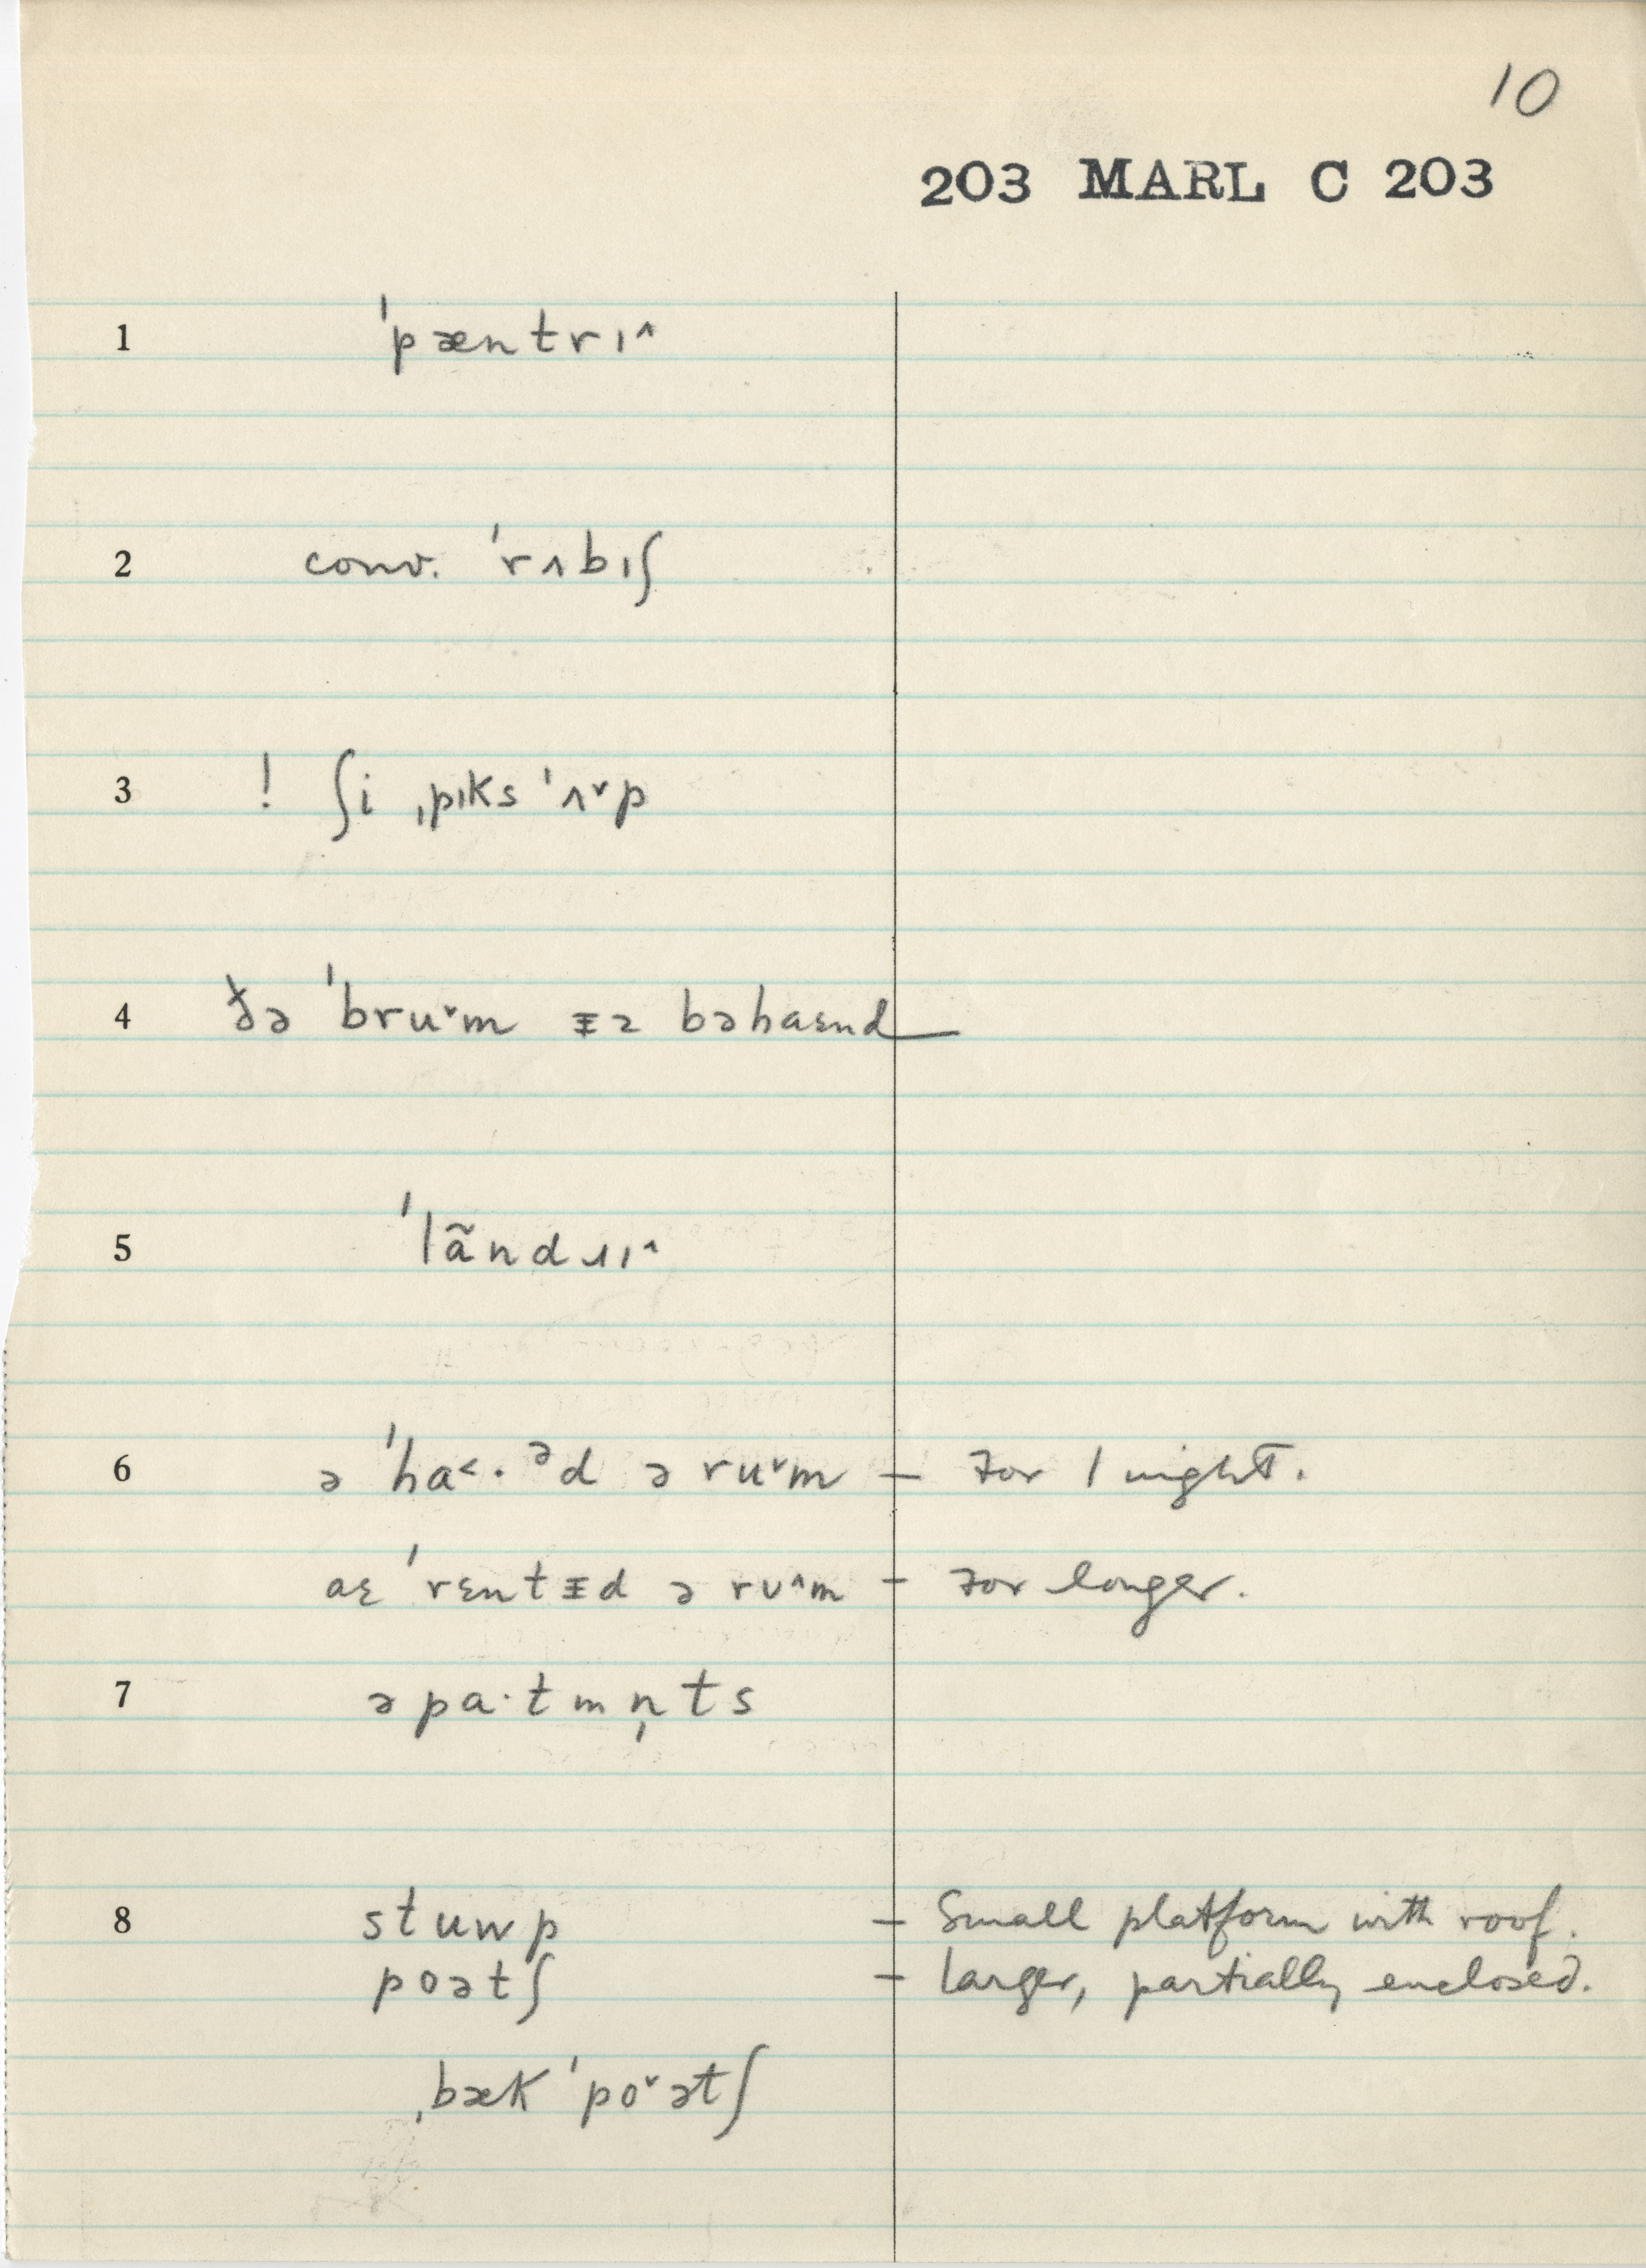 10
203 MARL C 203
1 ˈpæntrɪ^
2 conv. ˈrʌbɪʃ
3 ! ʃi ˌpɪks ˈʌ˅p
4 ðə ˈbru˅m ᵻz bəhaɛnd
5 ˈlãndɹɪ^
6 ə ˈha<·ᵊd ə ru˅m – for 1 night.
aɛ ˈrɛntᵻd ə rʊ^m – for longer.
7 əpa·tmn̩ts
8 stuwp – Small platform with roof.
poətʃ – larger, partially enclosed.
ˌbækˈpo˅ətʃ